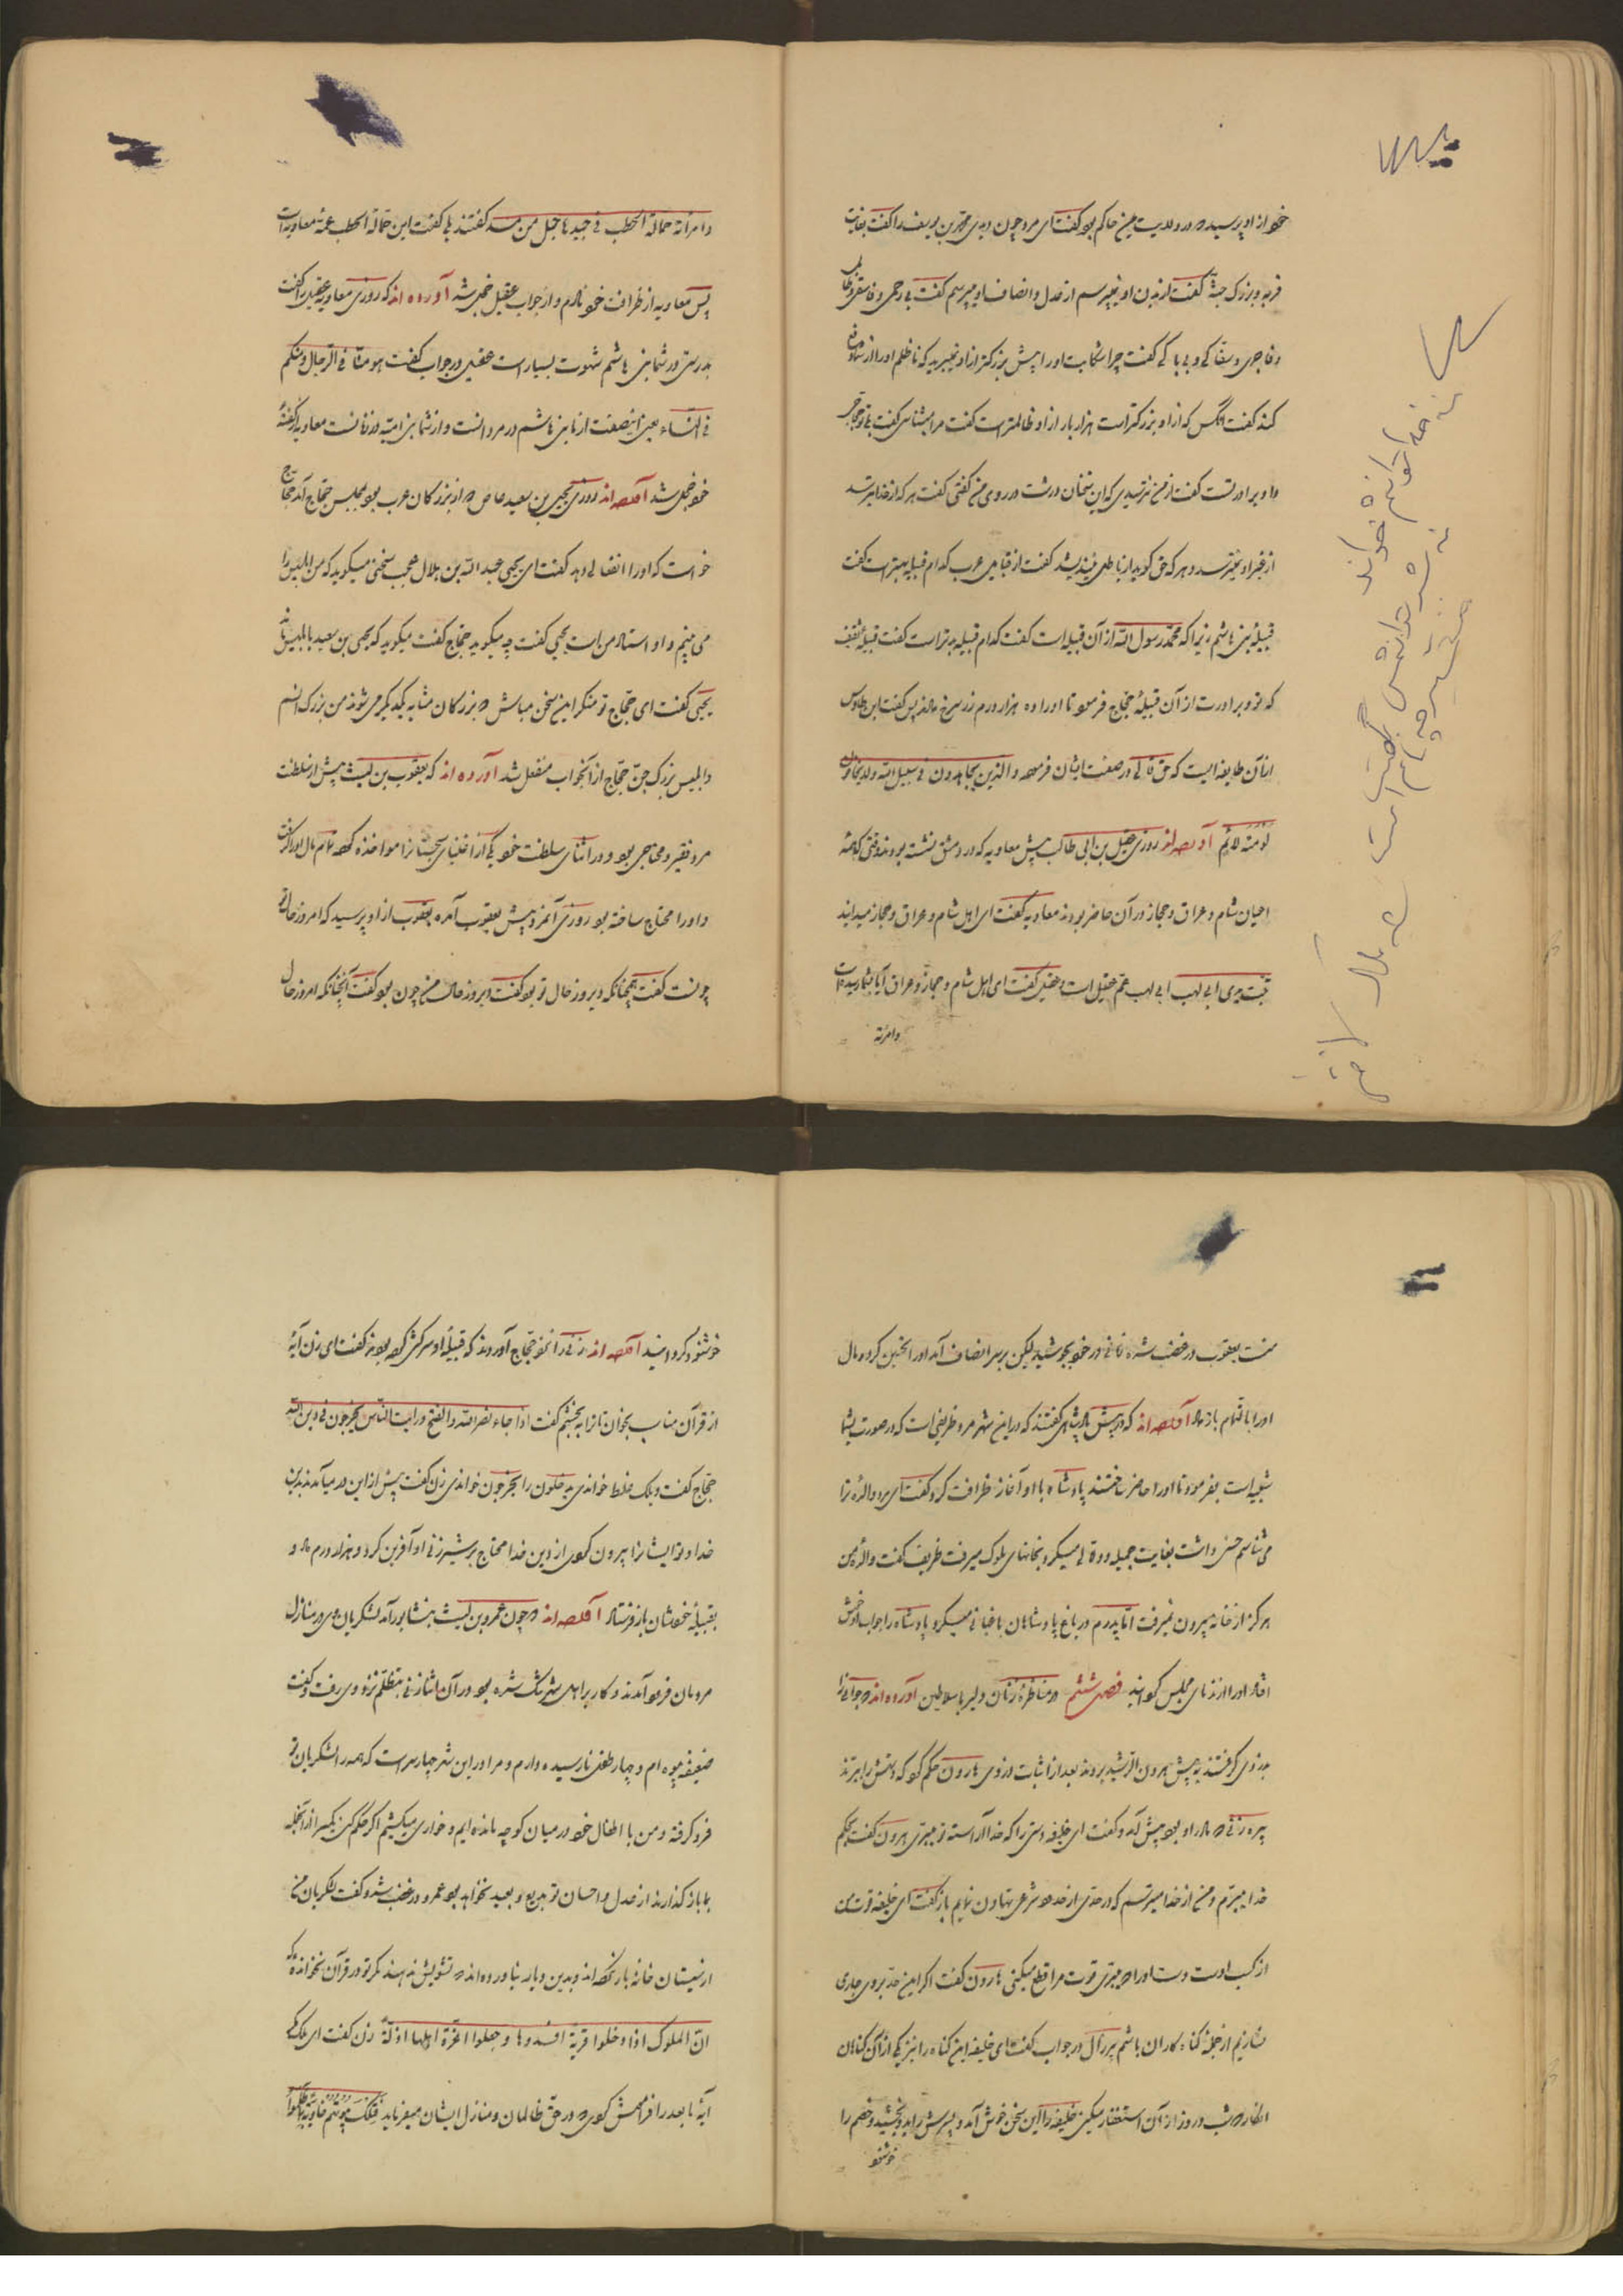 خود از او پرسید که در ولایت یمن حاکم بود گفت ای مرد چون دیدی محمد بن یوسف را گفت بغایت
فربه و بزرگ جثه گفت از بدن او نمیپرسم از عدل و انصاف او میپرسم گفت بی رحمی و فاسقی و ظالمی
و فاجری و سفاکی و بی باکی گفت چرا شکایت او را پیش بزرگتر از او نمیبرید که تا ظلم او را از شما دفع
کند گفت آنکس که از او بزرگتر است هزار بار از او ظالمتر است گفت مرا میشناسی گفت بلی تو حجاجی
و او برادر تست گفت از من نترسیدی که این سخنان درشت در روی من گفتی گفت هر که از خدا ترسد
از غیر او نترسد و هر که حق گوید از باطل نیندیشد گفت از قبایل عرب کدام قبیله بهتر است گفت
قبیله بنی هاشم زیرا که محمد رسول الله از آن قبیله است گفت کدام قبیله بدتر است گفت قبیله ثقیف
که تو و برادرت از آن قبیله حجاج فرمود تا او را ده هزار درم زر سرخ دادند پس گفت این طاوس
از آن طایفه ایست که حق تعالی در صفت ایشان فرموده والذین یجاهدون فی سبیل الله ولا یخافون
لومة لائم آورده اند روزی عقیل بن ابی طالب پیش معاویه که در دمشق نشسته بودند وقتی که همه
اعیان شام و عراق و حجاز در آن حاضر بودند معاویه گفت ای اهل شام و عراق و حجاز میدانید
تبت یدی ابی لهب ابی لهب عم عقیل است و عقیل گفت ای اهل شام و حجاز و عراق آیا بشما رسیده است
وامرئة
وامرئة حمالة الحطب فی جیدها حبل من مسد گفتند بلی گفت این حمالة الحطب عمه معاویه است
پس معاویه از ظرافت خود نادم و از جواب عقیل خجل شد آورده اند که روزی معاویه عقیل را گفت
بدرستی در شما بنی هاشم شهوت بسیار است عقیل در جواب گفت هو منا فی الرجال و منکم
فی النساء یعنی این صفت از ما بنی هاشم در مردانست و از شما بنی امیه در زنانست معاویه از گفته
خود خجل شد آورده اند روزی یحیی بن سعید عاص که از بزرگان عرب بود بمجلس حجاج آمد حجاج
خواست که او را انفعالی دهد گفت ای یحیی عبد الله بن بلال عجب سخنی میگوید که من ابلیس را
می بینم و او استاد من است یحیی گفت چه میگوید حجاج گفت میگوید که یحیی بن سعید با ابلیس ماند
یحیی گفت ای حجاج تو منکر این سخن مباش که بزرگان مشابه یکدیگر می شوند من بزرگ انسم
و ابلیس بزرگ جن حجاج از آن جواب منفعل شد آورده اند که یعقوب بن لیث پیش از سلطنت
مرد فقیر و محتاجی بود و در اثنای سلطنت خود یکی از اغنیای سجستان را مواخذه کرده تمام مال او را گرفت
و او را محتاج ساخته بود روزی آنمرد پیش یعقوب آمده یعقوب از او پرسید که امروز حال تو
چونست گفت همچنانکه دیروز حال تو بود گفت دیروز حال من چون بود گفت آنچنانکه امروز حال
منست یعقوب در غضب شده زمانی در خود بجوشید لیکن بر سر انصاف آمد او را تحسین کرد و مال
او را بالتمام باز داد آورده اند که پیش پادشاهی گفتند که در این شهر مرد ظریفی است که در صورت بشما
شبیه است بفرمود تا او را حاضر ساختند پادشاه با او آغاز ظرافت کرد گفت ای مرد والده ترا
می شناسم حسن داشت بغایت جمیله و دلالی میکرد و بخانهای ملوک میرفت ظریف گفت والده من
هرگز از خانه بیرون نمیرفت اما پدرم در باغ پادشاهان باغبانی میکرد پادشاه را جواب او خوش
افتاد او را از ندمای مجلس گردانید فصل ششم در مناظره زنان دلیر با سلاطین آورده اند که جوانی را
بدزدی گرفتند به پیش هرون الرشید بردند بعد از اثبات دزدی هارون حکم کرد که دستش را ببرند
پیره زنی که مادر او بود پیش آمد و گفت ای خلیفه دستی را که خدا آراسته تو میبری هرون گفت بحکم
خدا میبرم و من از خدا میترسم که در حدی از حدود شرعی تهاون نمایم باز گفت ای خلیفه قوت من
از کسب اوست دست او را که میبری قوت مرا قطع میکنی هارون گفت اگر این حد بر وی جاری
نسازیم از جمله گناه کاران باشم پیرزال در جواب گفت ای خلیفه این گناه را نیز یکی از آن گناهان
انگار که شب و روز از آن استغفار میکنی خلیفه را این سخن خوش آمد و پسرش را بدو بخشید و خصم را
خوشنود
خوشنود گردانید آورده اند زنی را نزد حجاج آوردند که قبیله او سرکش کرده بودند گفت ای زن آیه
از قرآن مناسب بخوان تا ترا ببخشم گفت اذا جاء نصر الله والفتح ورایت الناس یخرجون فی دین الله
حجاج گفت ویلک غلط خواندی یدخلون را یخرجون خواندی زن گفت پیش از این در میآمدند بدین
خدا و تو ایشانرا بیرون کردی از دین خدا حجاج بر شیرزنی او آفرین کرد و هزار درم داد و
بقبیله خودشان باز فرستاد آورده اند که چون عمرو بن لیث بنشابور آمد لشکریان وی در منازل
مردمان فرود آمدند و کار بر اهل شهر تنگ شده بود در آن اثنا زنی بتظلم نزد وی رفت و گفت
ضعیفه بیوه ام و چهار طفل نارسیده دارم و مرا در این شهر چهار سراست که همه را لشکریان تو
فرو گرفته و من با اطفال خود در میان کوچه مانده ایم و خواری میکشیم اگر حکم کنی یکسرا از آنجمله
بما باز گذارند از عدل و احسان تو بدیع و بعید نخواهد بود عمرو در غضب شد و گفت لشکریان من
از سیستان خانه بار نکرده اند و بدین دیار نیاورده اند که تشویش ندهند مگر تو در قرآن نخوانده که
ان الملوک اذا دخلوا قریة افسدوها وجعلوا اعزة اهلها اذلة زن گفت ای ملک
آیه ما بعد را فراموش کردی که در حق ظالمان و منازل ایشان میفرماید فتلک بیوتهم خاویة بما ظلموا